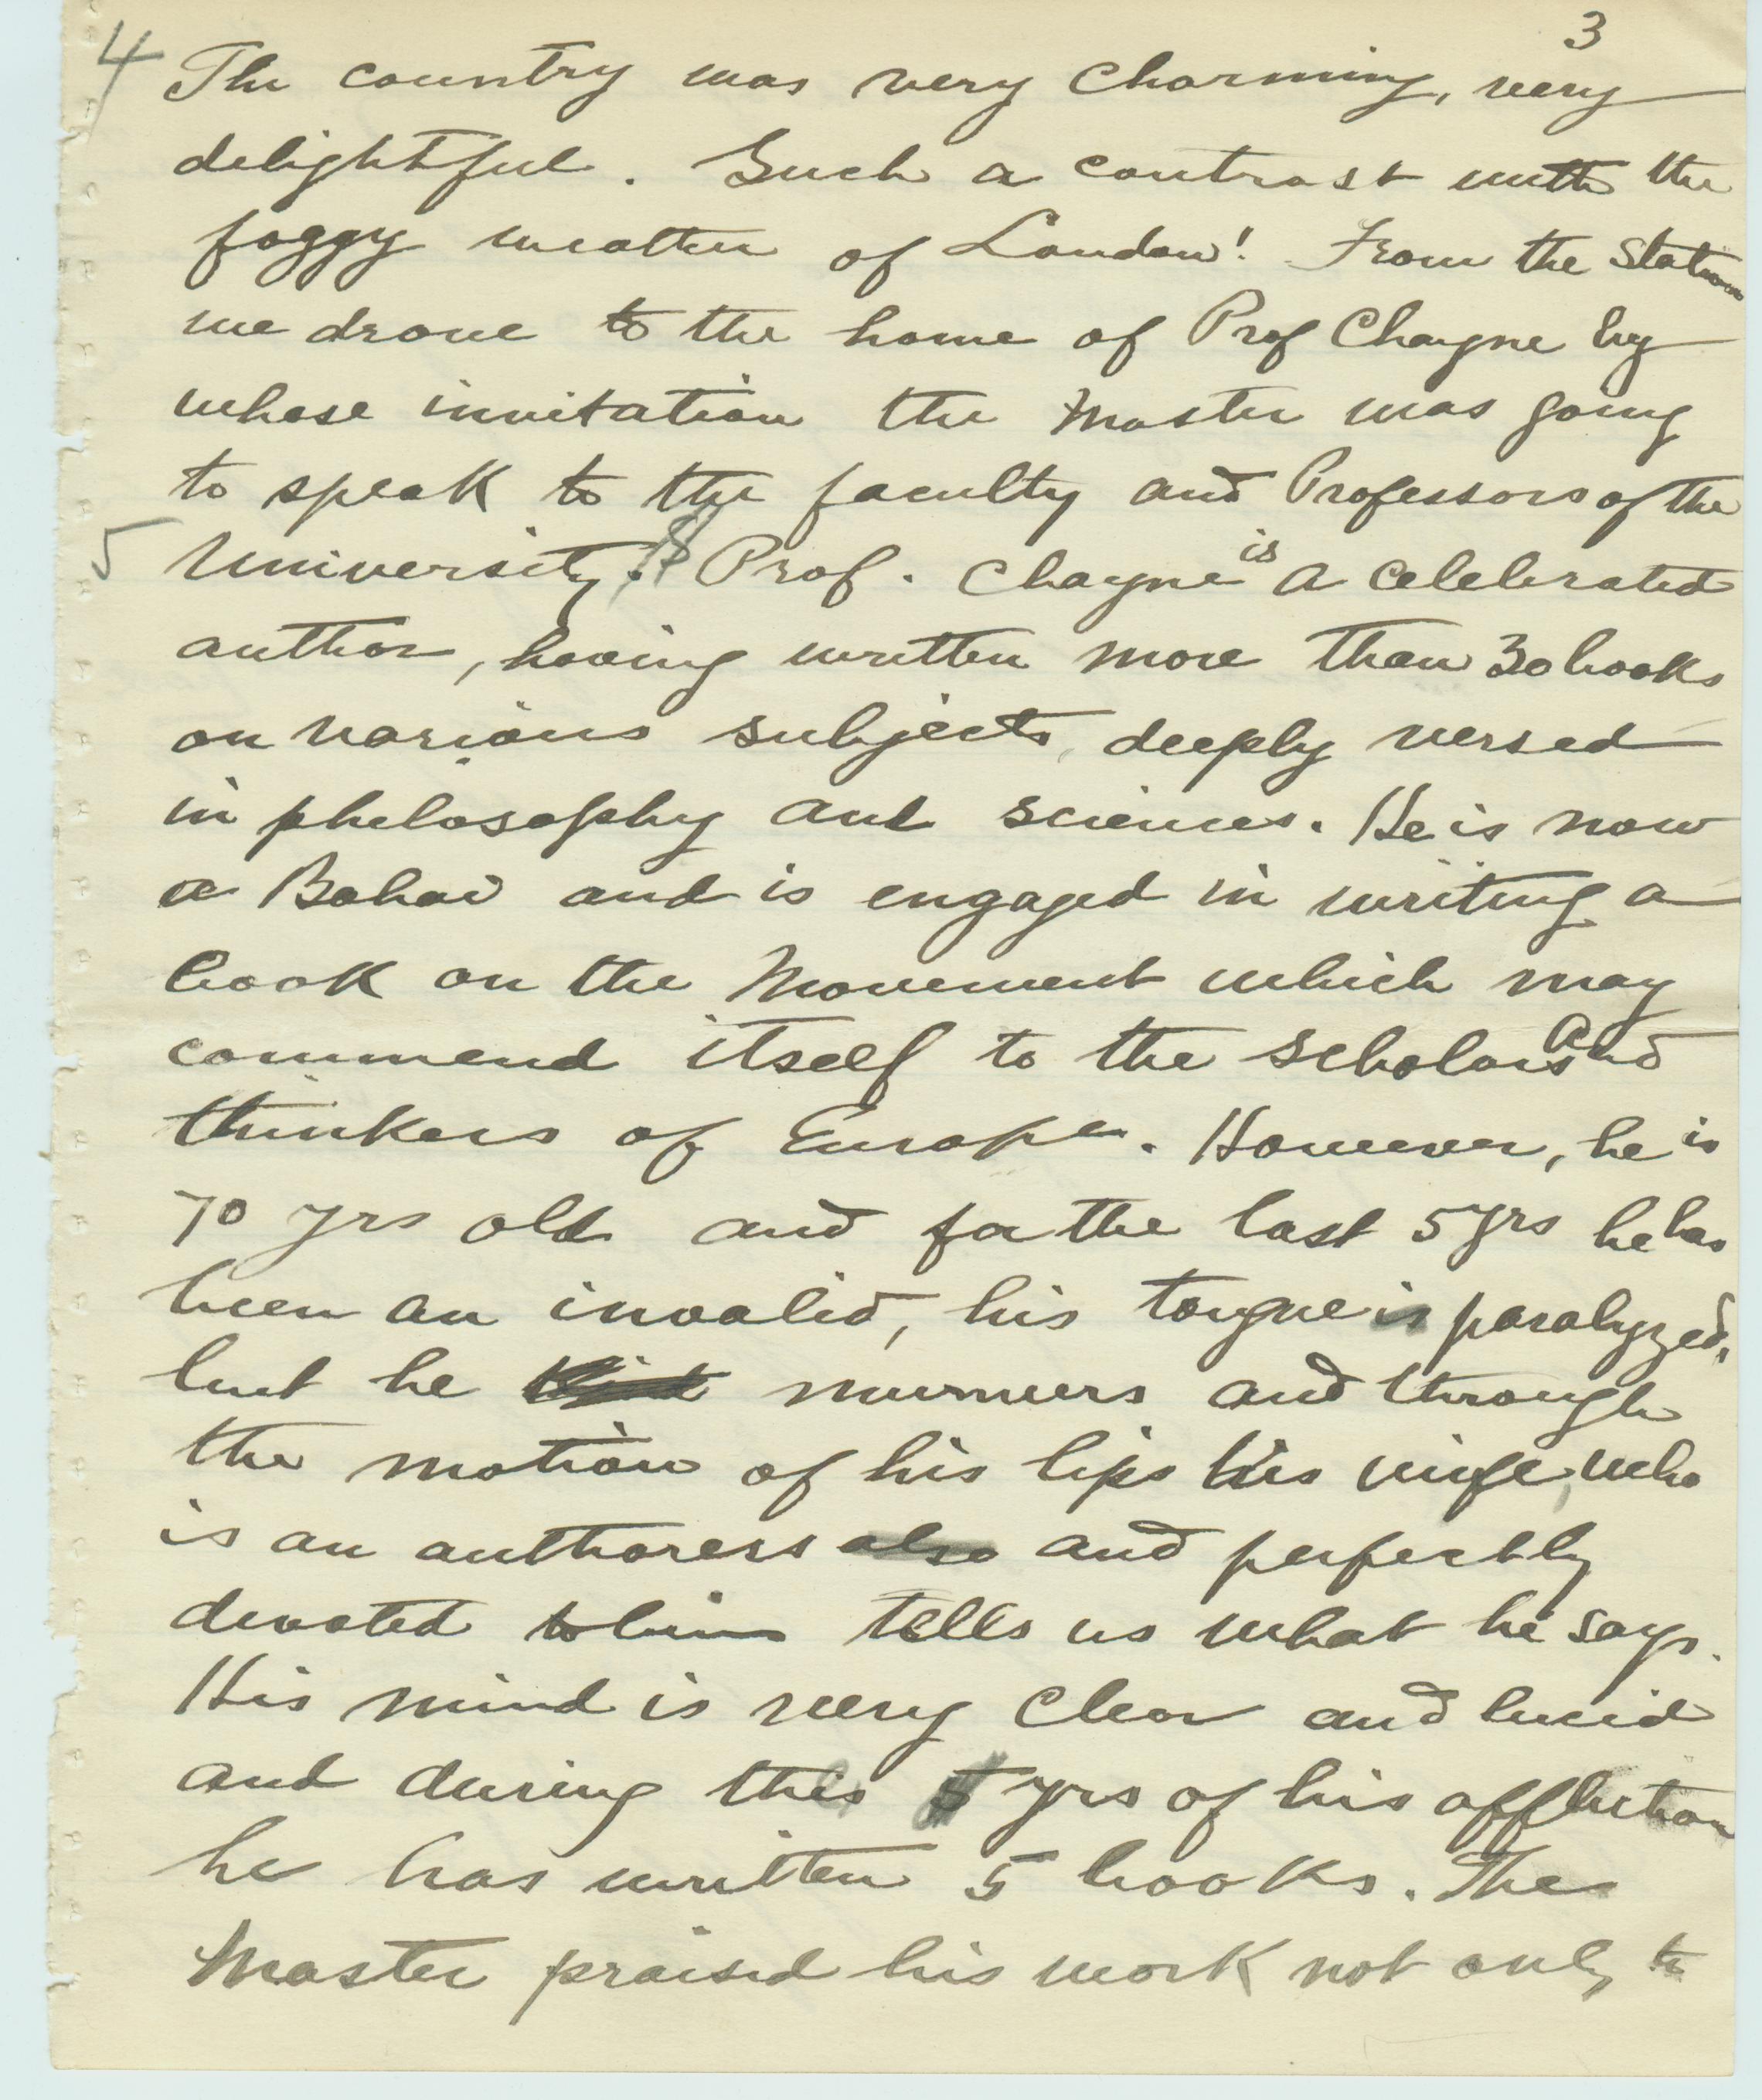 3
4 The country was very charming, very
delightful. Such a contrast with the
foggy weather of London! From the Station
we drove to the home of Prof Chayne by
whose invitation the Master was going
to speak to the faculty and Professors of the
5 University. Prof. Chayne is a celebrated
author, having written more than 30 books
on various subjects, deeply versed
in philosophy and sciences. He is now
a Bahai and is engaged in writing a
book on the Movement which may
commend itself to the scholars and
thinkers of Europe. However, he is
70 yrs old and for the last 5 yrs he has
been an invalid, his tongue is paralyzed,
but he murmurs and through
the motion of his lips his wife, who
is an authoress also and perfectly
devoted to him tells us what he says.
His mind is very clear and lucid
and during this 5 yrs of his affliction
he has written 5 books. The
Master praised his work not only to